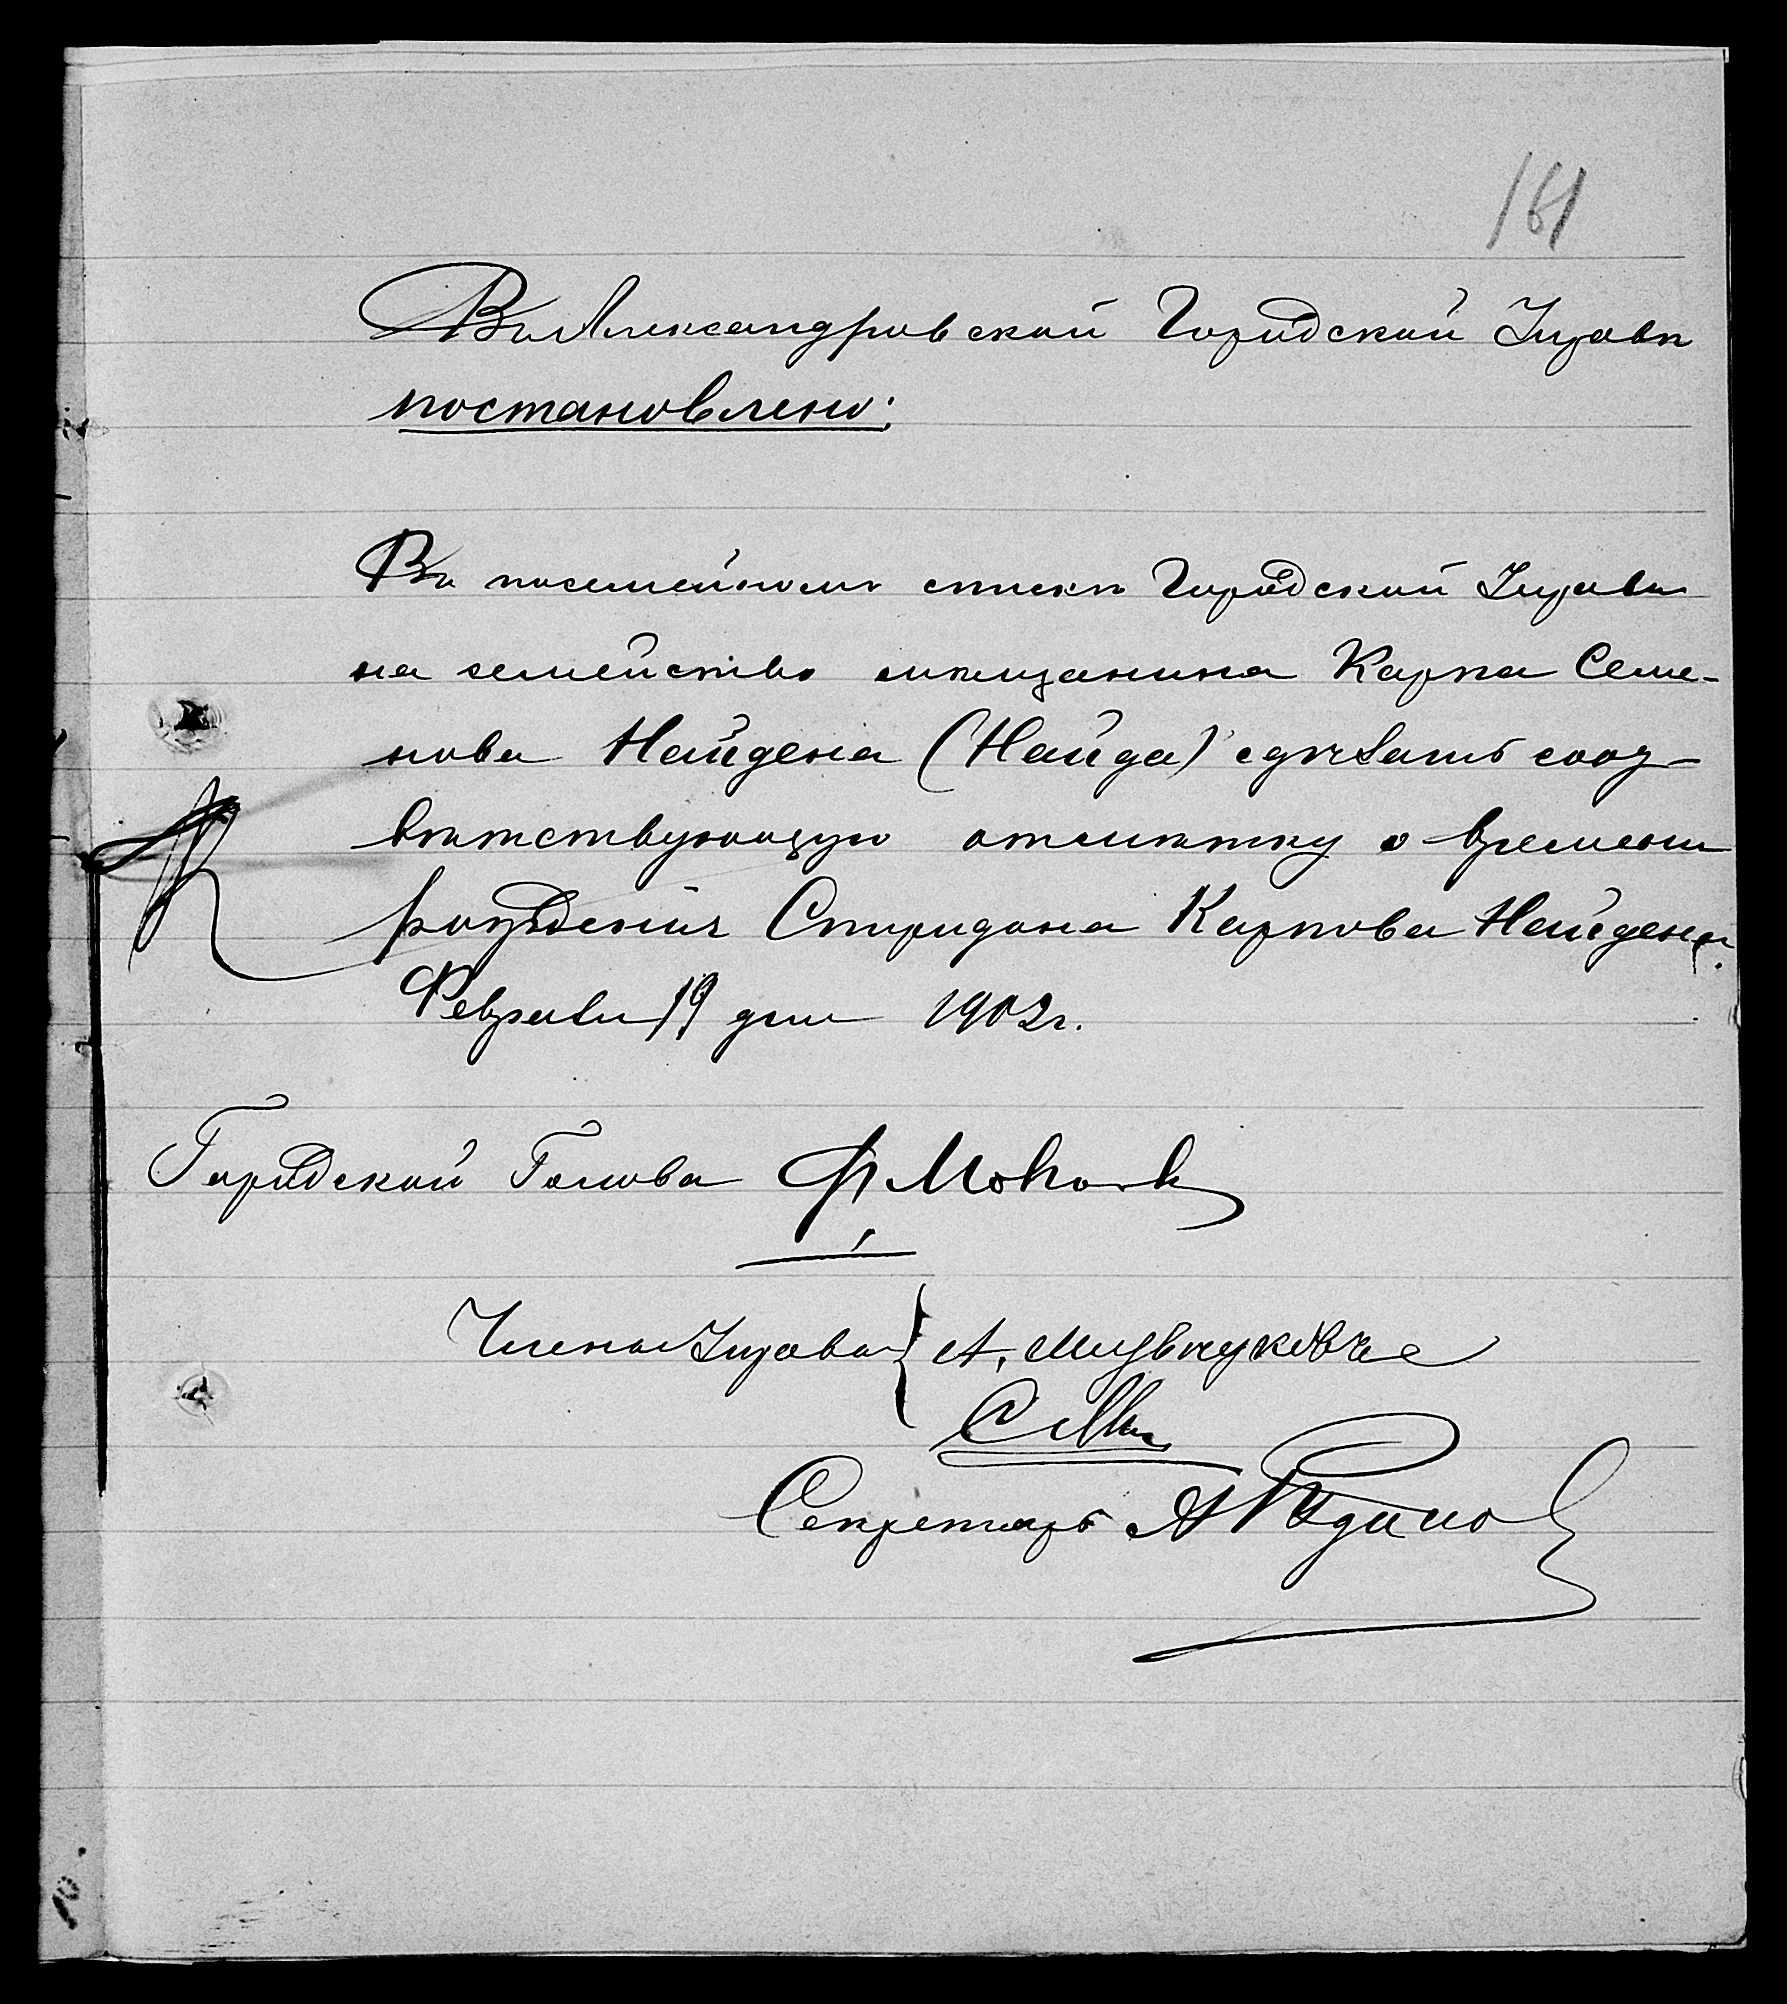 161
Въ Александровской Городской Управѣ
постановлено:
Въ посемейномъ спискѣ Городской Управы
на семейство мѣщанина Карпа Семе-
нова Найдена (Найда) сдѣлать соот-
вѣтствующую отмѣтку о времени
рожденія Спиридона Карпова Найдена.
Февраля 19 дня 1902 г.
Городской Голова Ф Мовчан
Члены Управы А.
Секретарь А